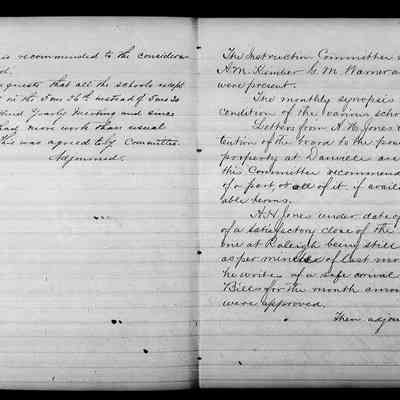 is recommended to the considera-
quests that all the schools except
in the 5 mo 26th instead of 5 mo 20
Yearly Meeting and since
had more work than usual
This was agreed to by Committee.
Adjourned.
The Instruction Committee
A. M. Kimber G. M. Warner a
were present.
The monthly synopsis
condition of the various scho
Letters from A. H. Jones
tention of the board to the
property at Danville are
this Committee recommend
of a part, or all of it if avail
able terms.
A. H. Jones under date of
of a satisfactory close of the
one at Raleigh being still
as per minutes of last mo
he writes of a safe arrival
Bills for the month amou
were approved.
Then adjou